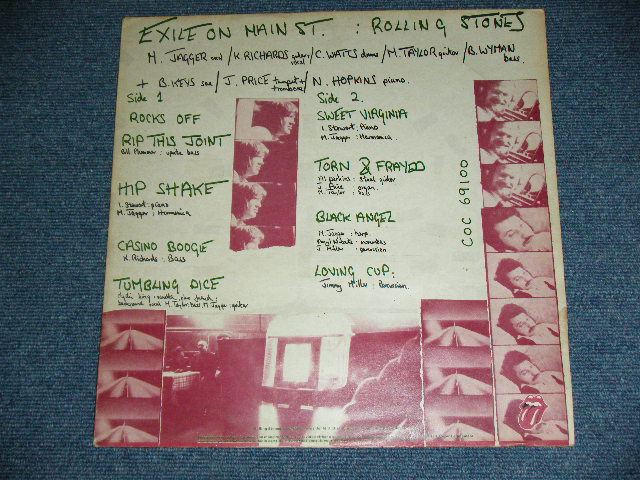 EXILE ON MAIN ST. : ROLLING STONES
M. JAGGER vocal / K. RICHARDS guitar, vocal / C. WATTS drums / M. TAYLOR guitar / B. WYMAN bass.
+ B. KEYS sax / J. PRICE trumpet + trombone / N. HOPKINS piano.
Side 1
ROCKS OFF
RIP THIS JOINT
Bill Plummer : upright bass
HIP SHAKE
I. Stewart : piano
M. Jagger : Harmonica
CASINO BOOGIE
K. Richards : Bass
TUMBLING DICE
M. Taylor : bass, M. Jagger : guitar
Side 2.
SWEET VIRGINIA
I. Stewart. Piano
M. Jagger : Harmonica.
TORN & FRAYED
Al Perkins : steel guitar
J. Price : organ.
M. Taylor : bass
BLACK ANGEL
M. Jagger : harp.
J. Miller : percussion
LOVING CUP:
Jimmy Miller : Percussion.
COC 69100